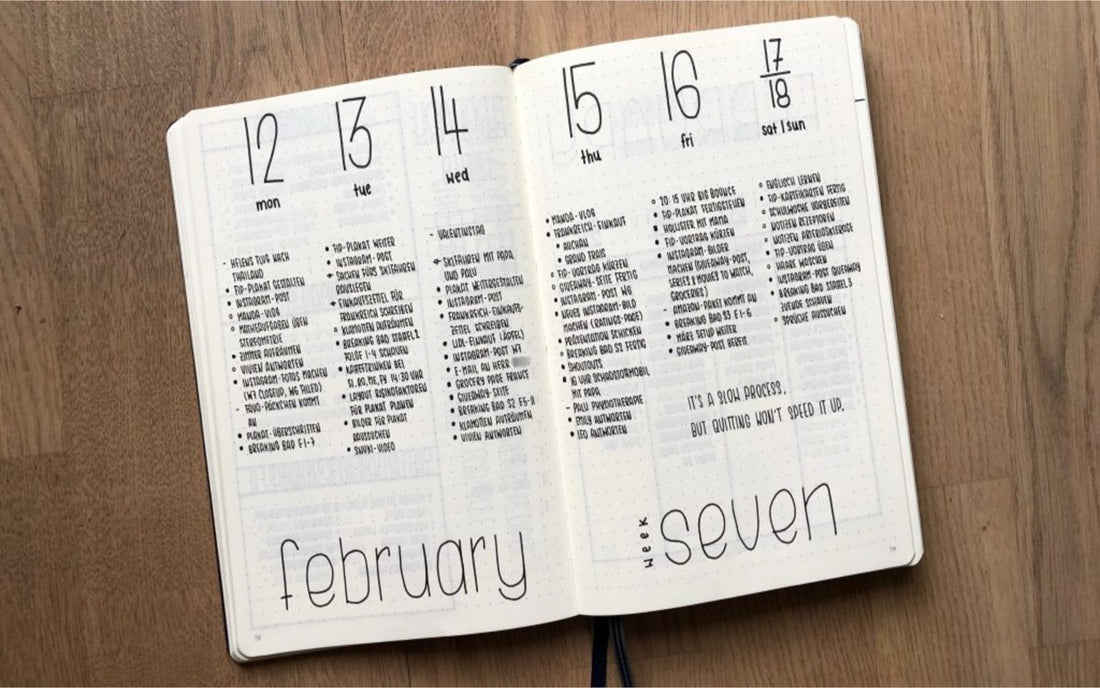 12
mon
- HELENS FLUG NACH
THAILAND
• TIP-PLAKAT GESTALTEN
• INSTAGRAM-POST
• MANGA-VLOG
○ MATHEAUFGABEN ÜBEN
STEREOMETRIE
• ZIMMER AUFRÄUMEN
○ VIVIEN ANTWORTEN
• INSTAGRAM-FOTOS MACHEN
(W7 CLOSEUP, W6 FILLED)
- PÄCKCHEN KOMMT
AN
• PLAKAT-ÜBERSCHRIFTEN
• BREAKING BAD E1-7
13
tue
• TIP-PLAKAT WEITER
• INSTAGRAM-POST
SACHEN FÜRS SKIFAHREN
RAUSLEGEN
EINKAUFSZETTEL FÜR
FRANKREICH SCHREIBEN
○ KLAMOTTEN AUFRÄUMEN
• BREAKING BAD STAFFEL 2
FOLGE 1-4 SCHAUEN
• KAFFEETRINKEN BEI
14:30 UHR
• LAYOUT RISIKOFAKTOREN
FÜR PLAKAT PLANEN
• BILDER FÜR PLAKAT
RAUSSUCHEN
• VIDEO
14
wed
- VALENTINSTAG
SKIFAHREN MIT PAPA
UND PALU
• PLAKAT WEITERGESTALTEN
• INSTAGRAM-POST
• FRANKREICH-EINKAUFS-
ZETTEL SCHREIBEN
LIDL-EINKAUF (ÄPFEL)
• INSTAGRAM-POST W7
• E-MAIL AN HERR
• GROCERY PAGE FRANCE
• GIVEAWAY-SEITE
• BREAKING BAD S2 E5-11
• KLAMOTTEN AUFRÄUMEN
• VIVIEN ANTWORTEN
15
thu
• MANGA-VLOG
• FRANKREICH-EINKAUF
• AUCHAN
• GRAND FRAIS
○ TIP-VORTRAG KÜRZEN
○ GIVEAWAY-SEITE FERTIG
• INSTAGRAM-POST W6
• NEUES INSTAGRAM-BILD
MACHEN (RATINGS-PAGE)
• PRÄSENTATION SCHICKEN
• BREAKING BAD S2 FERTIG
○ SHOUTOUTS
16 UHR SCHADSTOFFMOBIL
MIT PAPA
- PALU PHYSIOTHERAPIE
• EMILY ANTWORTEN
• LEO ANTWORTEN
16
fri
○ 20:15 UHR BIG BOUNCE
• TIP-PLAKAT FERTIGSTELLEN
HOLLISTER MIT MAMA
○ TIP-VORTRAG KÜRZEN
• INSTAGRAM-BILDER
MACHEN (GIVEAWAY-POST,
SERIES & MOVIES TO WATCH,
GROCERIES)
- AMAZON-PAKET KOMMT AN
• BREAKING BAD S3 E1-6
• MÄRZ SETUP WEITER
• GIVEAWAY-POST BEREIT
17
18
sat | sun
○ ENGLISCH LERNEN
• TIP-KARTEIKARTEN FERTIG
○ SCHULWOCHE VORBEREITEN
○ NOTIZEN REZEPTOREN
○ NOTIZEN ARTERIOSKLEROSE
○ TIP-VORTRAG ÜBEN
• HAARE WASCHEN
• INSTAGRAM-POST GIVEAWAY
• BREAKING BAD STAFFEL 3
ZUENDE SCHAUEN
○ SPRÜCHE AUSSUCHEN
IT'S A SLOW PROCESS,
BUT QUITTING WON'T SPEED IT UP.
february
week seven
78
79